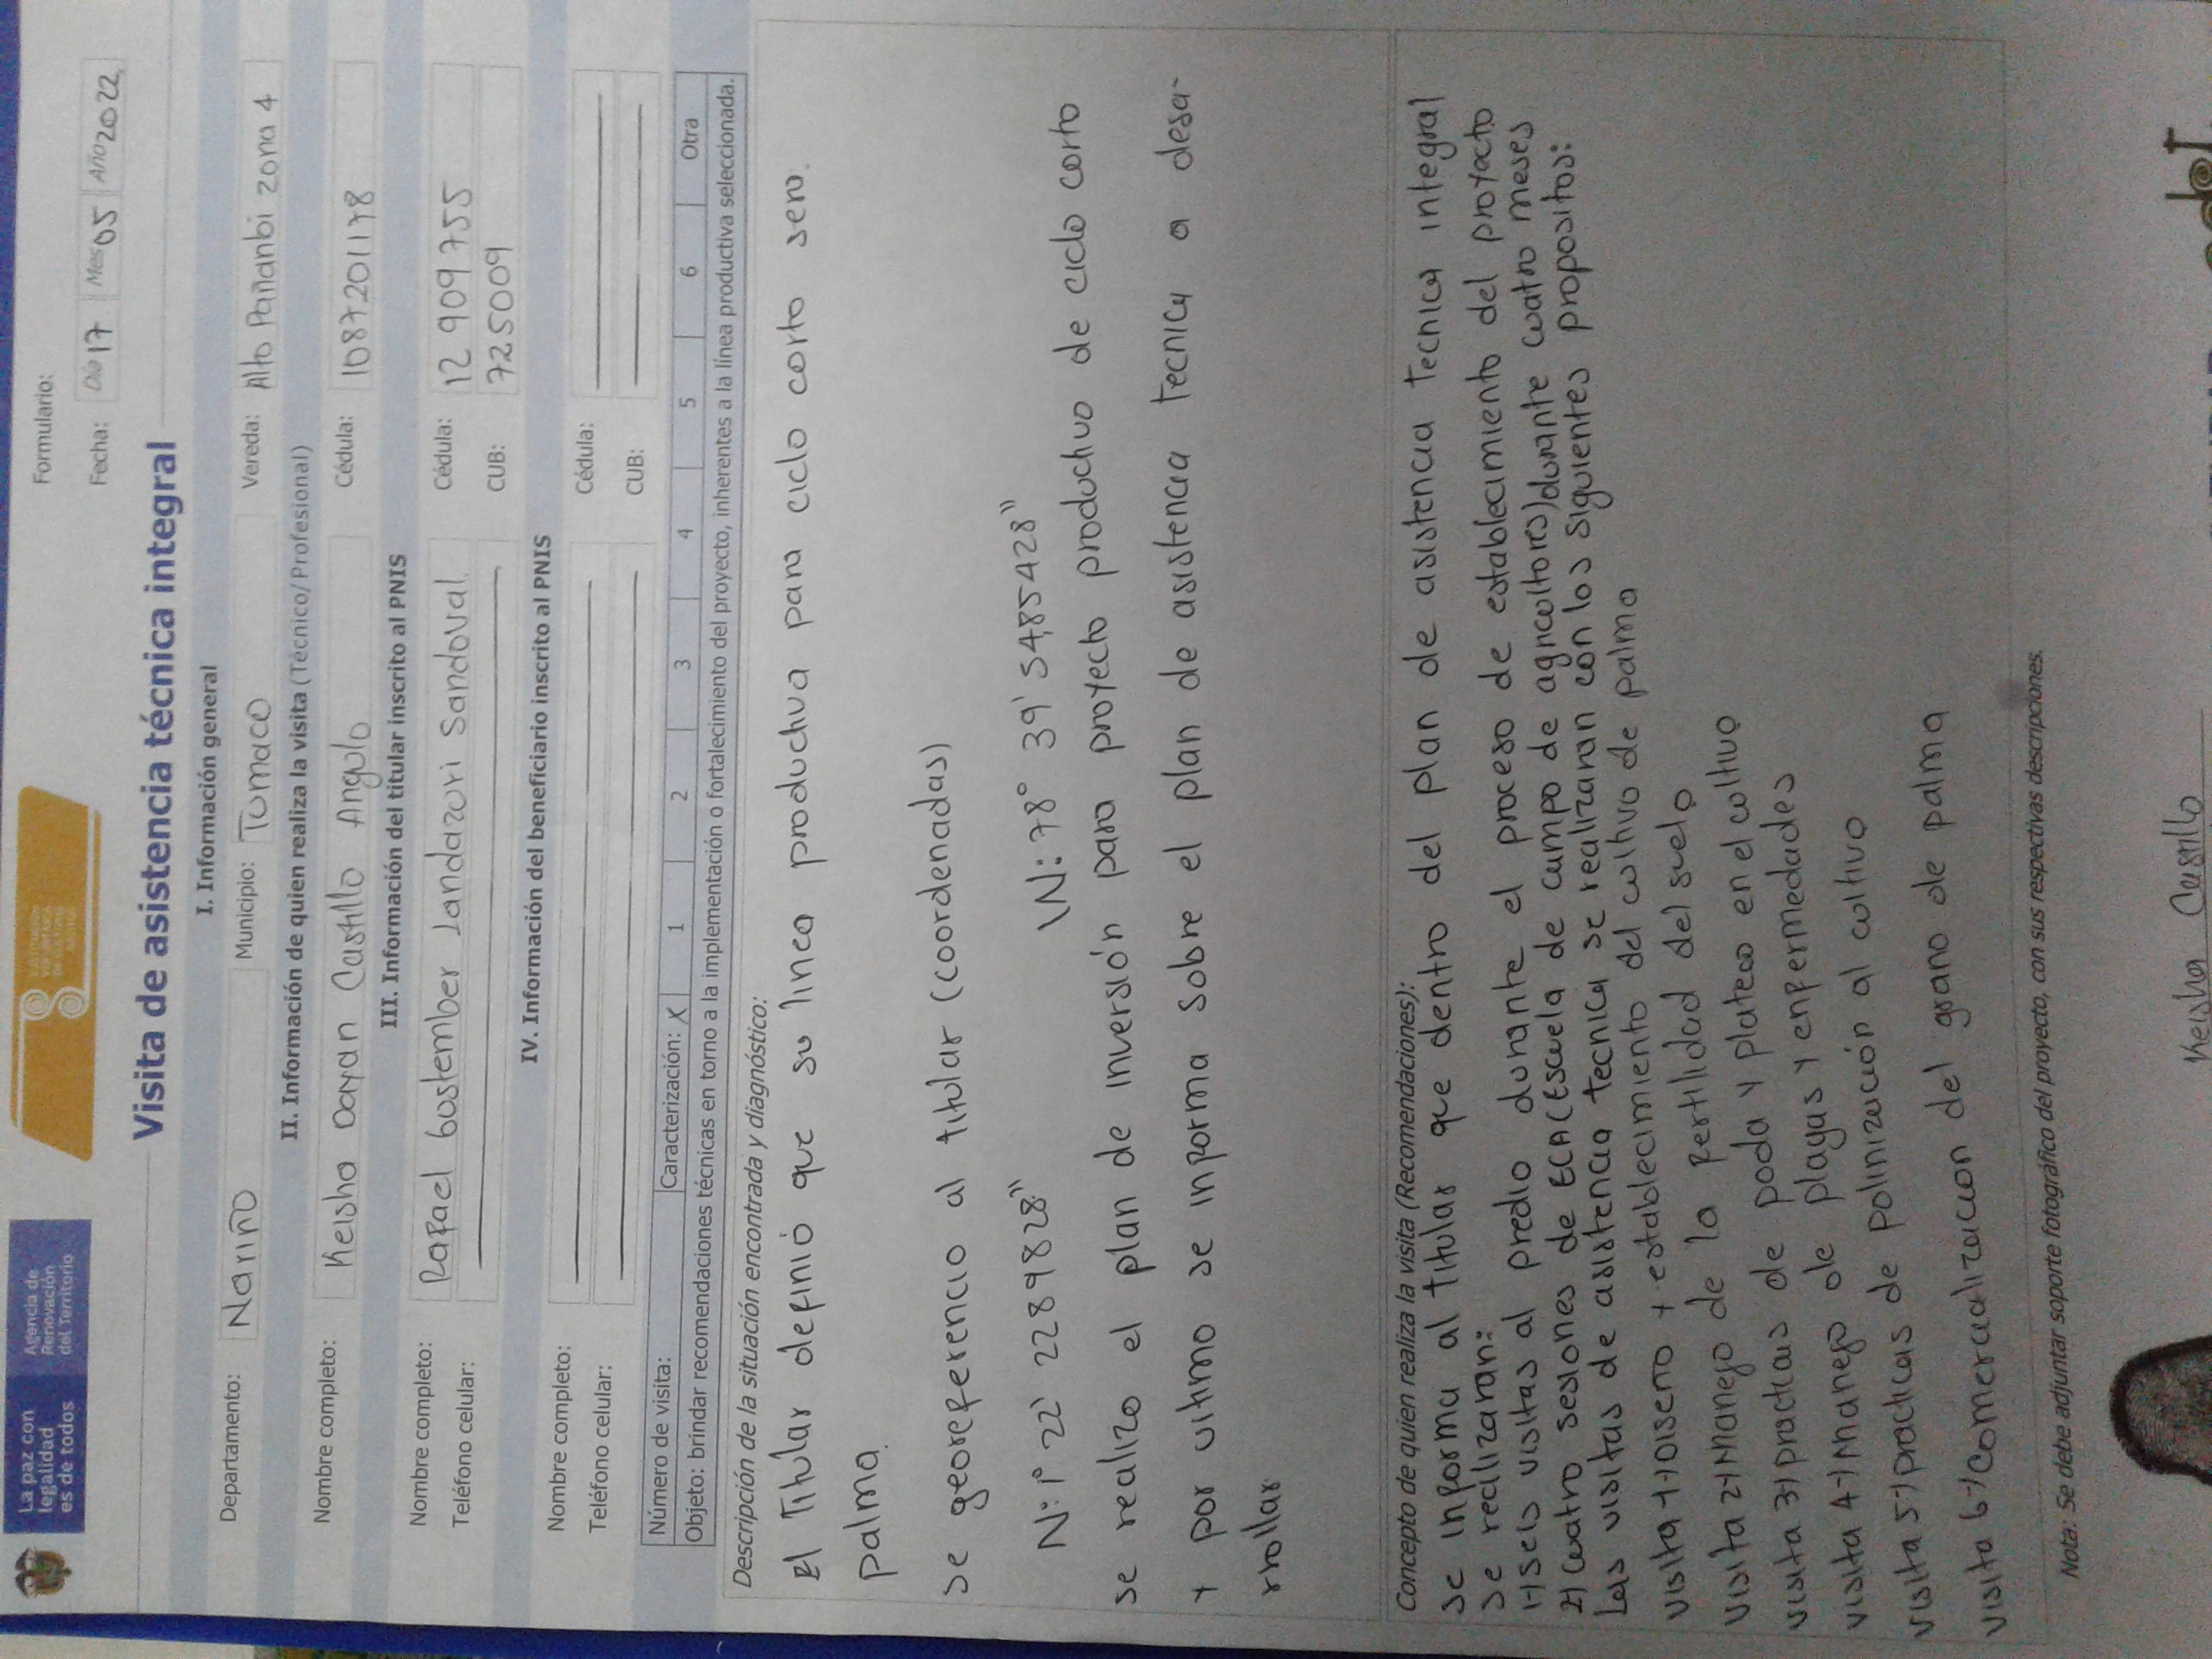 La paz con
legalidad
es de todos
Agencia de
Renovación
del Territorio
Formulario:
Fecha: Día 17 Mes 05 Año 2022
Visita de asistencia técnica integral
I. Información general
Departamento: Nariño Municipio: Tumaco Vereda: Alto Pañanbi zona 4
II. Información de quien realiza la visita (Técnico/ Profesional)
Nombre completo: Keisha Dayan Castillo Angulo Cédula: 1087201178
III. Información del titular inscrito al PNIS
Nombre completo: Rafael bostember Landazuri Sandoval. Cédula: 12 909 755
Teléfono celular: CUB: 725009
IV. Información del beneficiario inscrito al PNIS
Nombre completo: Cédula:
Teléfono celular: CUB:
Número de visita: Caracterización: X 1 2 3 4 5 6 Otra
Objeto: brindar recomendaciones técnicas en torno a la implementación o fortalecimiento del proyecto, inherentes a la línea productiva seleccionada.
Descripción de la situación encontrada y diagnóstico:
El Titular definió que su linea productiva para ciclo corto sera.
palma.
se georeferencio al titular (coordenadas)
N: 1° 22' 2289828" W: 78° 39' 54,85428"
se realizo el plan de inversión para proyecto productivo de ciclo corto
y por ultimo se informa sobre el plan de asistencia tecnica a desa-
rrollar.
Concepto de quien realiza la visita (Recomendaciones):
se informa al titular que dentro del plan de asistencia tecnica integral
se realizaran:
1-) seis visitas al predio durante el proceso de establecimiento del proyecto
2-) cuatro sesiones de ECA (Escuela de campo de agricultores) durante cuatro meses
Las visitas de asistencia tecnica se realizaran con los siguientes propositos:
visita 1-) Diseño y establecimiento del cultivo de palma
visita 2-) Manejo de la fertilidad del suelo
visita 3-) practicas de poda y plateo en el cultivo
visita 4-) Manejo de plagas y enfermedades
visita 5-) practicas de polinización al cultivo
visita 6-) Comercialización del grano de palma
Nota: Se debe adjuntar soporte fotográfico del proyecto, con sus respectivas descripciones.
Keisha Castillo